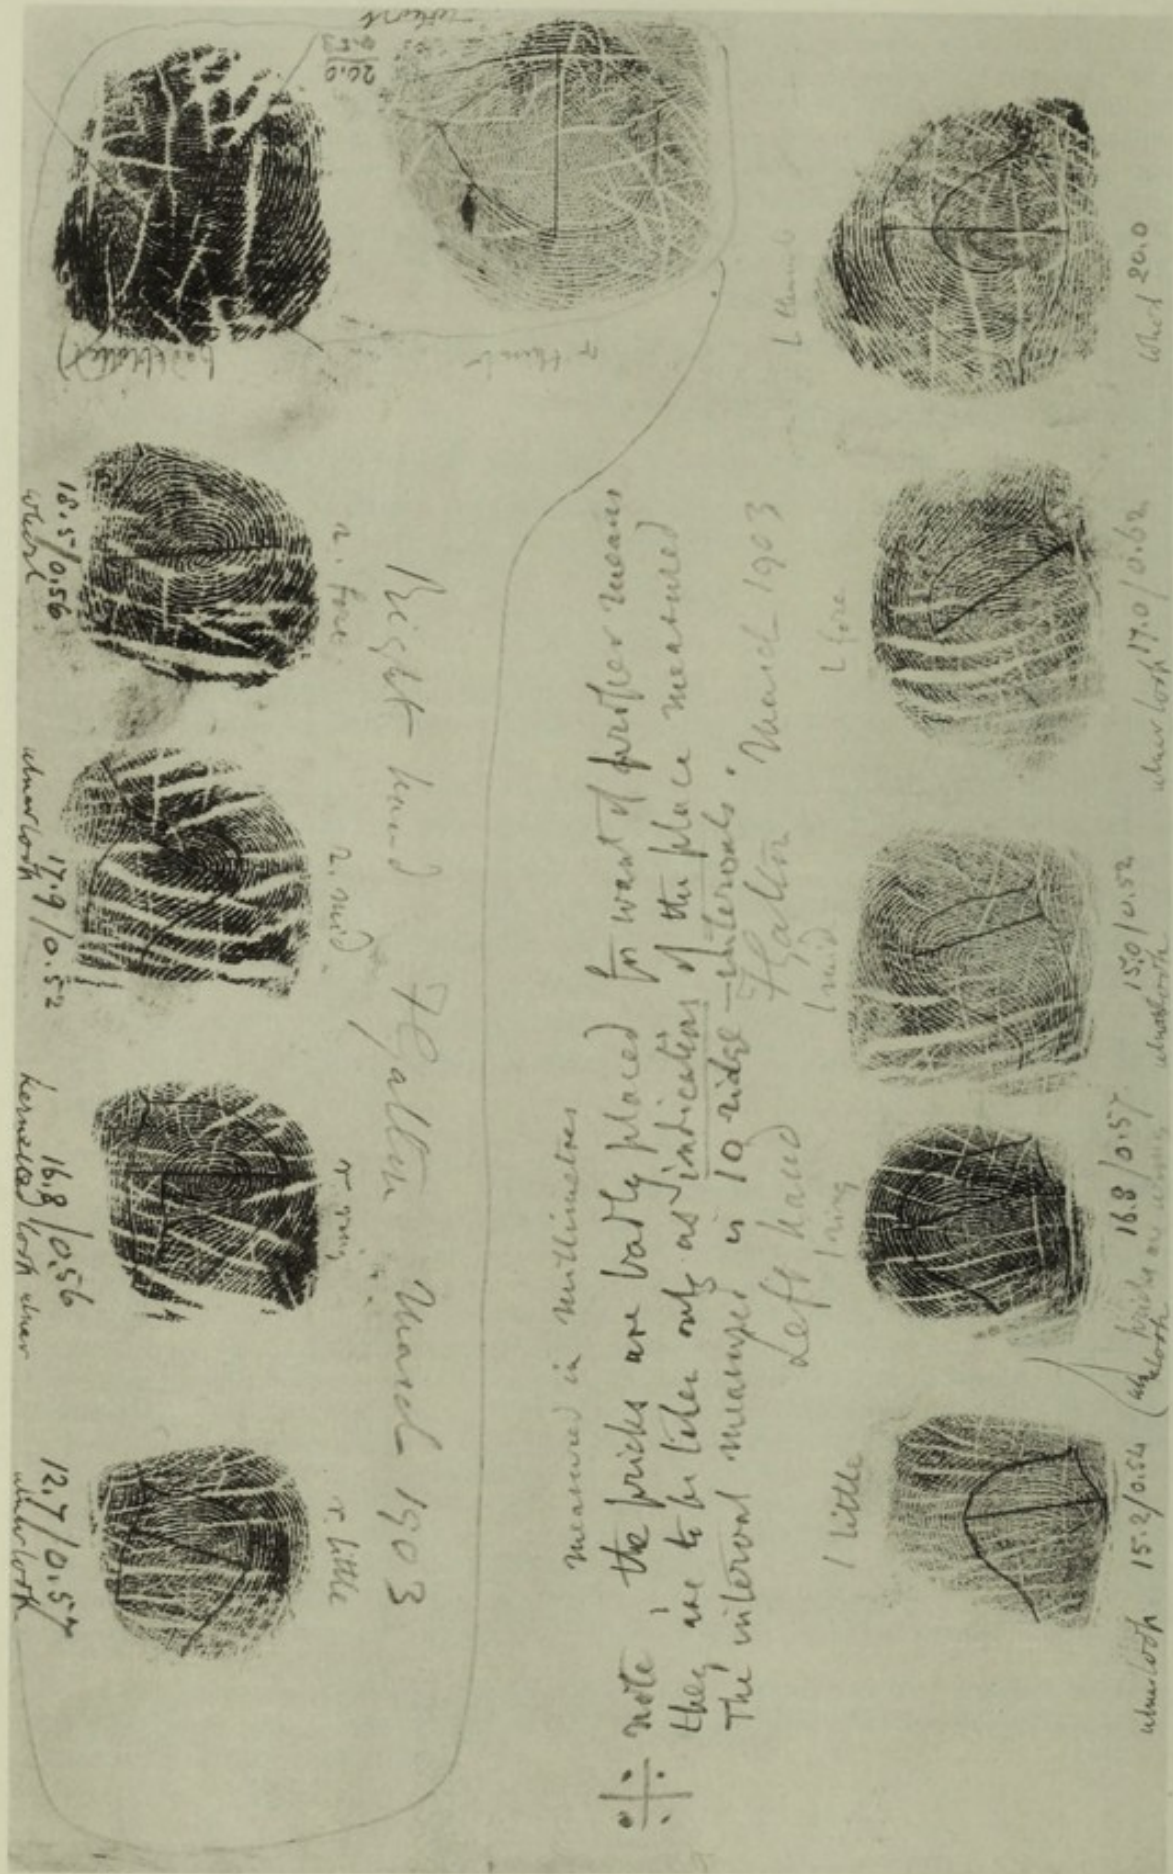 whorl
20.0
0.53
(badly rolled)
r thumb
r. fore
18.5/0.56
whorl
r. mid.
17.9/0.52
ulnar loop
r ring
16.8/0.56
kernelled loop ulnar
r little
12.7/0.57
ulnar loop
Right hand F Galton March 1903
measured in millimetres
note, the pricks are badly placed for want of proper means
they are to be taken only as indications of the place measured
The interval measured is 10 ridge-intervals.
Left hand F Galton March 1903
L thumb
whorl 20.0
L fore
ulnar loop 17.0/0.62
l mid
15.0/0.52
ulnar loop
l ring
16.8/0.57
l little
ulnar loop 15.2/0.54